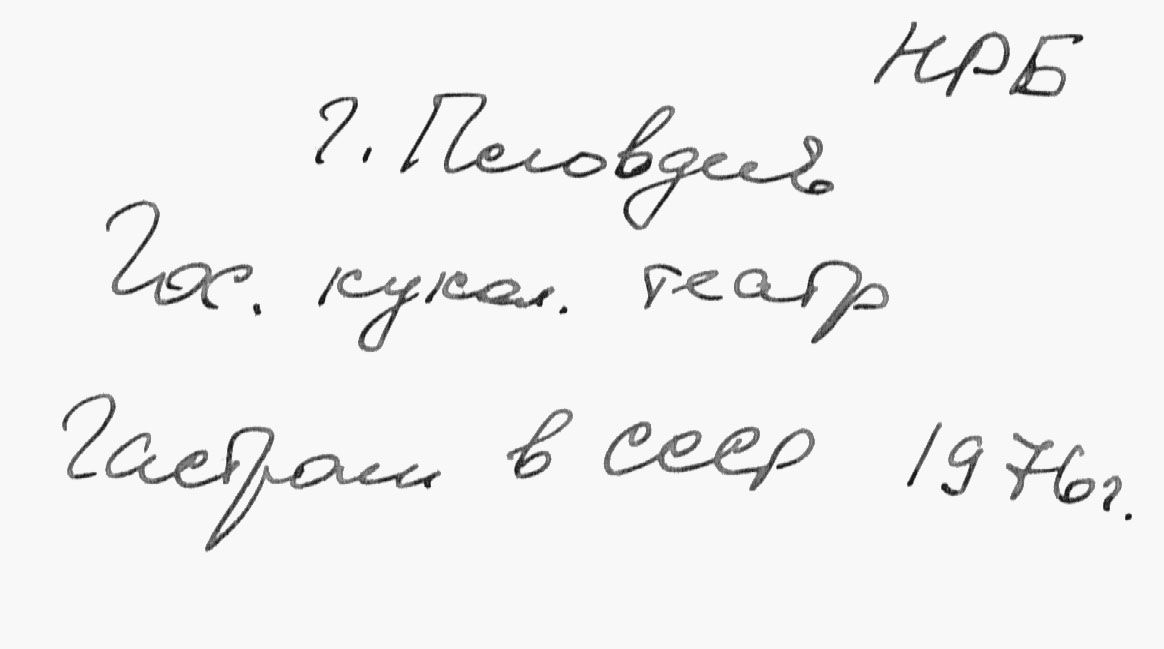 НРБ
г. Пловдивъ
Гос. кукол. театр
Гастроли в СССР 1976г.